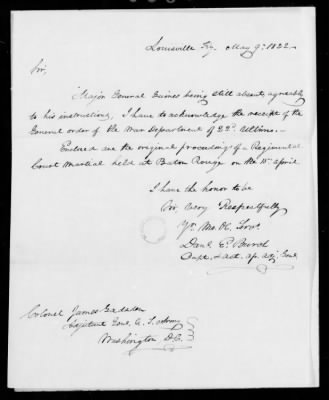 Louisville Ky. May 9th 1822.
Sir,
Major General Gaines being still absent, agreeably
to his instructions, I have to acknowledge the receipt of the
General order of the War Department of 22d. Ultimo.—
Enclosed are the original proceedings of a Regimental
Court Martial held at Baton Rouge on the 11th April
I have the honor to be
Sir, Very Respectfully
Yr. Mo. Ob. Servt.
Danl. E. Burch
Capt. & act. adj. Genl.
Colonel James Gadsden
Adjutant Genl. U. S. Army
Washington D.C.